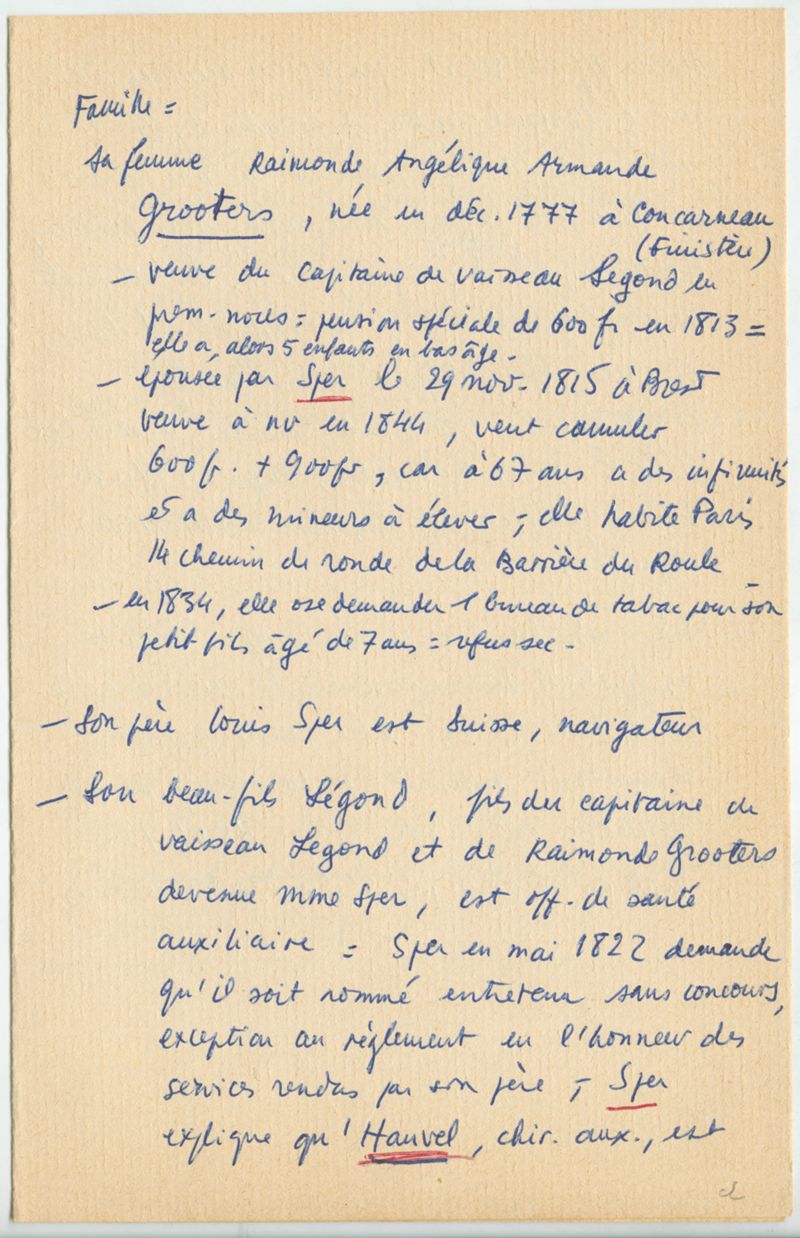 Famille =
Sa femme Raimonde Angélique Armande
Grooters, née en déc. 1777 à Concarneau
(Finistère)
– veuve du capitaine de vaisseau Segond en
prem. noces = pension spéciale de 600 fr en 1813 =
elle a, alors 5 enfants en bas âge.
– épousée par Sper le 29 nov. 1815 à Brest
veuve à nv en 1844, veut cumuler
600 fr. + 900 fr, car à 67 ans a des infirmités
et a des mineurs à élever ; elle habite Paris
14 chemin de ronde de la Barrière du Roule
– en 1834, elle ose demander 1 bureau de tabac pour son
petit fils âgé de 7 ans = refus sec.
– Son père Louis Sper est Suisse, navigateur
– Son beau-fils Ségond, fils du capitaine de
vaisseau Segond et de Raimonde Grooters
devenue Mme Sper, est off. de santé
auxiliaire = Sper en mai 1822 demande
qu'il soit nommé entretenu sans concours,
exception au règlement en l'honneur des
services rendus par son père ; Sper
explique qu'Hauvel, chir. aux., est